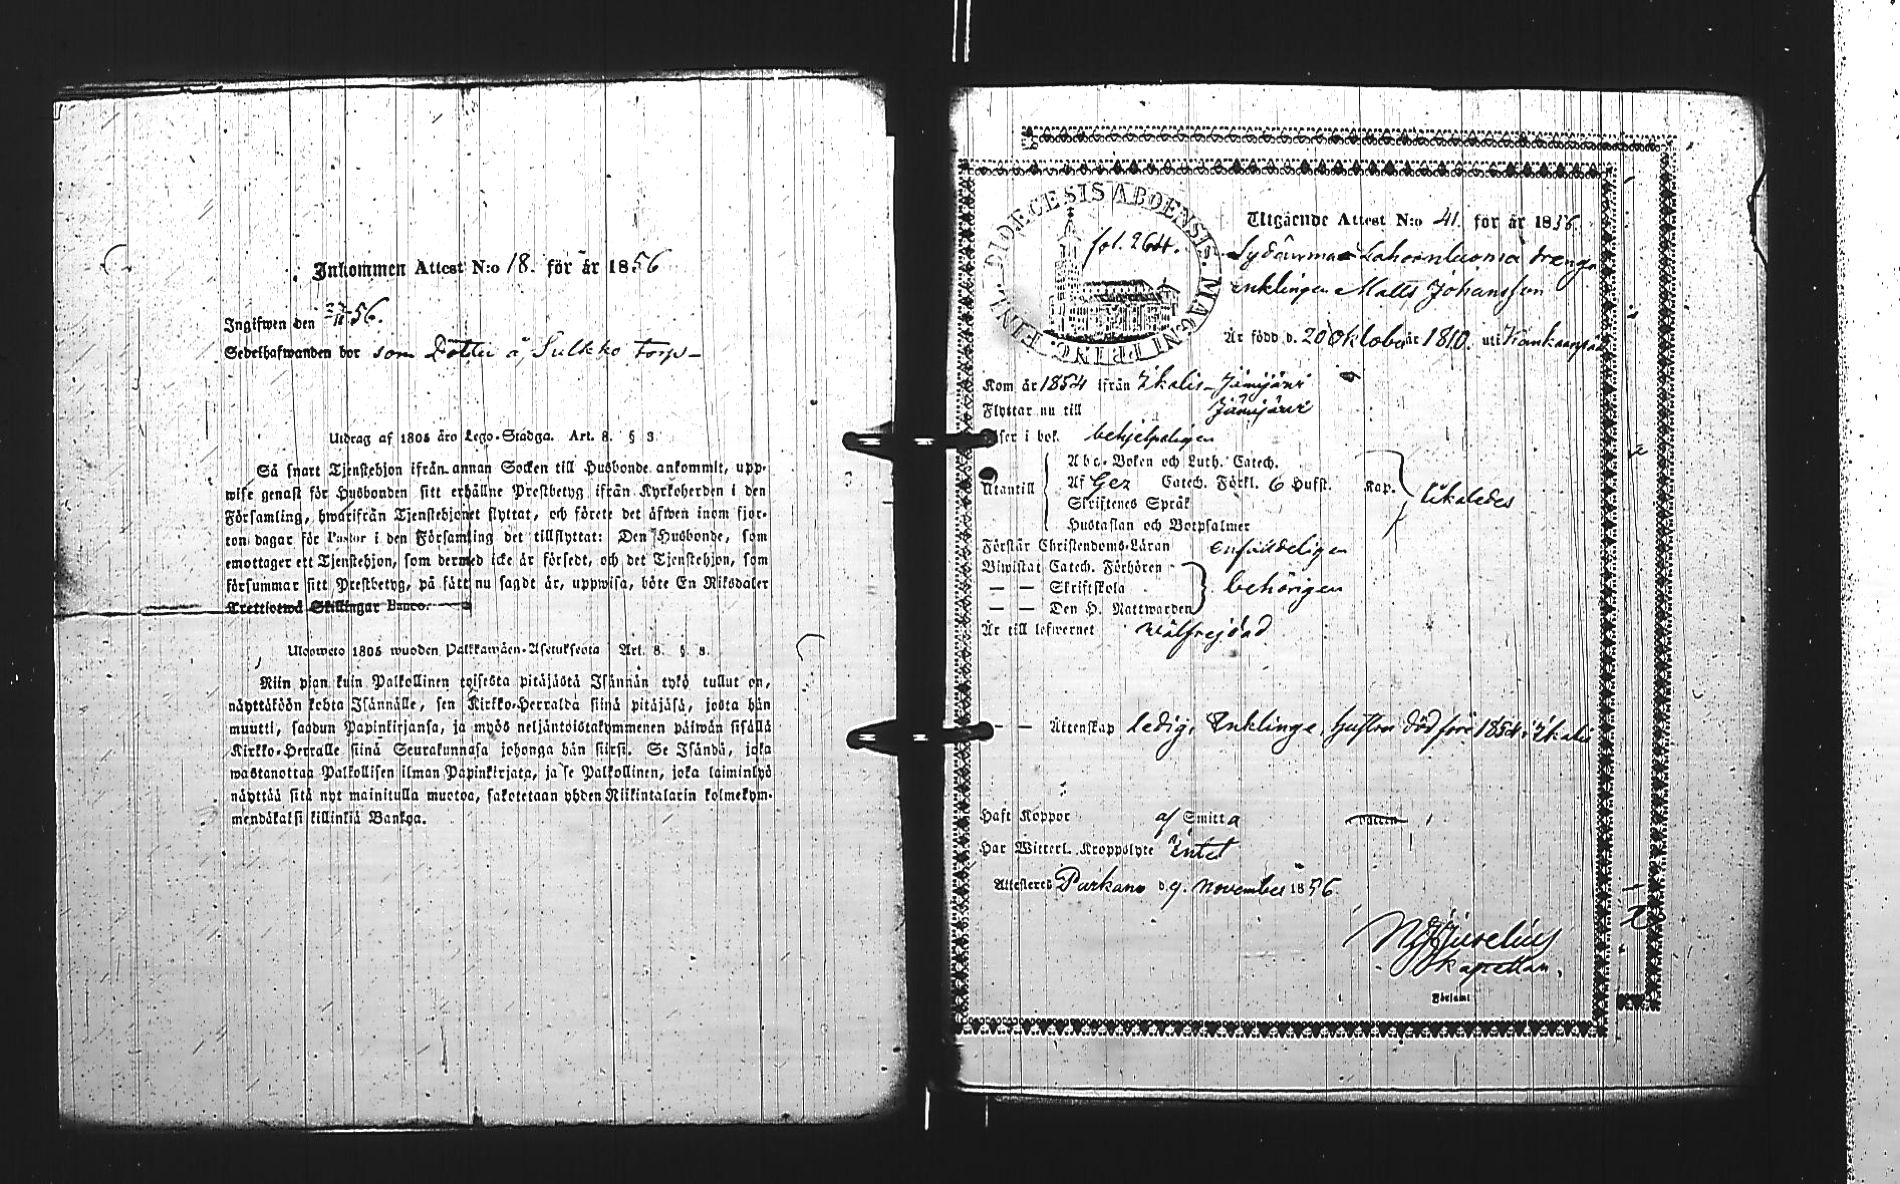 Inkommen Attest N:o 18. för år 1856
Ingifwen den 27/11 56.
Sedelhafwanden bor som Dotter å Sulkko torp
Utdrag af 1805 års Lego-Stadga. Art. 8. § 3.
Så snart Tjenstehjon ifrån annan Socken till Husbonde ankommit, upp-
wise genast för Husbonden sitt erhållne Prestbetyg ifrån Kyrkoherden i den
Församling, hwarifrån Tjenstehjonet flyttat, och förete det äfwen inom fjor-
ton dagar för Pastor i den Församling det tillflyttat: Den Husbonde, som
emottager ett Tjenstehjon, som dermed icke är försedt, och det Tjenstehjon, som
försummar sitt Prestbetyg, på sätt nu sagdt är, uppwisa, böte En Riksdaler
Trettiotwå Skillingar Banco.
Ulosweto 1805 wuoden Palkkawäen-Asetuksesta Art. 8. §. 3.
Niin pian kuin Palkollinen toisesta pitäjästä Isännän tykö tullut on,
näyttäköön kohta Isännälle, sen Kirkko-Herralda siinä pitäjäsä, josta hän
muutti, saadun Papinkirjansa, ja myös neljäntoistakymmenen päiwän sisällä
Kirkko-Herralle siinä Seurakunnasa johonga hän siirsi. Se Isändä, joka
wastanottaa Palkollisen ilman Papinkirjata, ja se Palkollinen, joka laiminlyö
näyttää sitä nyt mainitulla muotoa, sakotetaan yhden Riikintalarin kolmekym-
mendäkaksi killinkiä Bankoa.
DIOECESIS ABOENSIS. MAGNI PRINC. FINL.
fol. 264.
Utgående Attest N:o 41. för år 1856
Enklingen Matts Johansson
Är född d. 20 Oktober år 1810. uti Kankaanpää
Kom år 1854 ifrån Ikalis-Jämijärvi
Flyttar nu till Jämijärvi
Läser i bok. behjelpligen
Abc-Boken och Luth. Catech.
Utantill Af Gez Catech. Förkl. 6 Hufst. Kap. likaledes
Skriftenes Språk
Hustaflan och Botpsalmer
Förstår Christendoms-Läran enfaldeligen
Biwistat Catech. Förhören
— — Skriftskola behörigen
— — Den H. Nattwarden
Är till lefwernet wälfrejdad
— — Ägtenskap ledig, Enkling, hustrun död före 1854 i Ikalis
Haft Koppor af Smitta
Har Witterl. Kroppslyte intet
Attesteras Parkano d. 9. november 1856.
Kapellan.